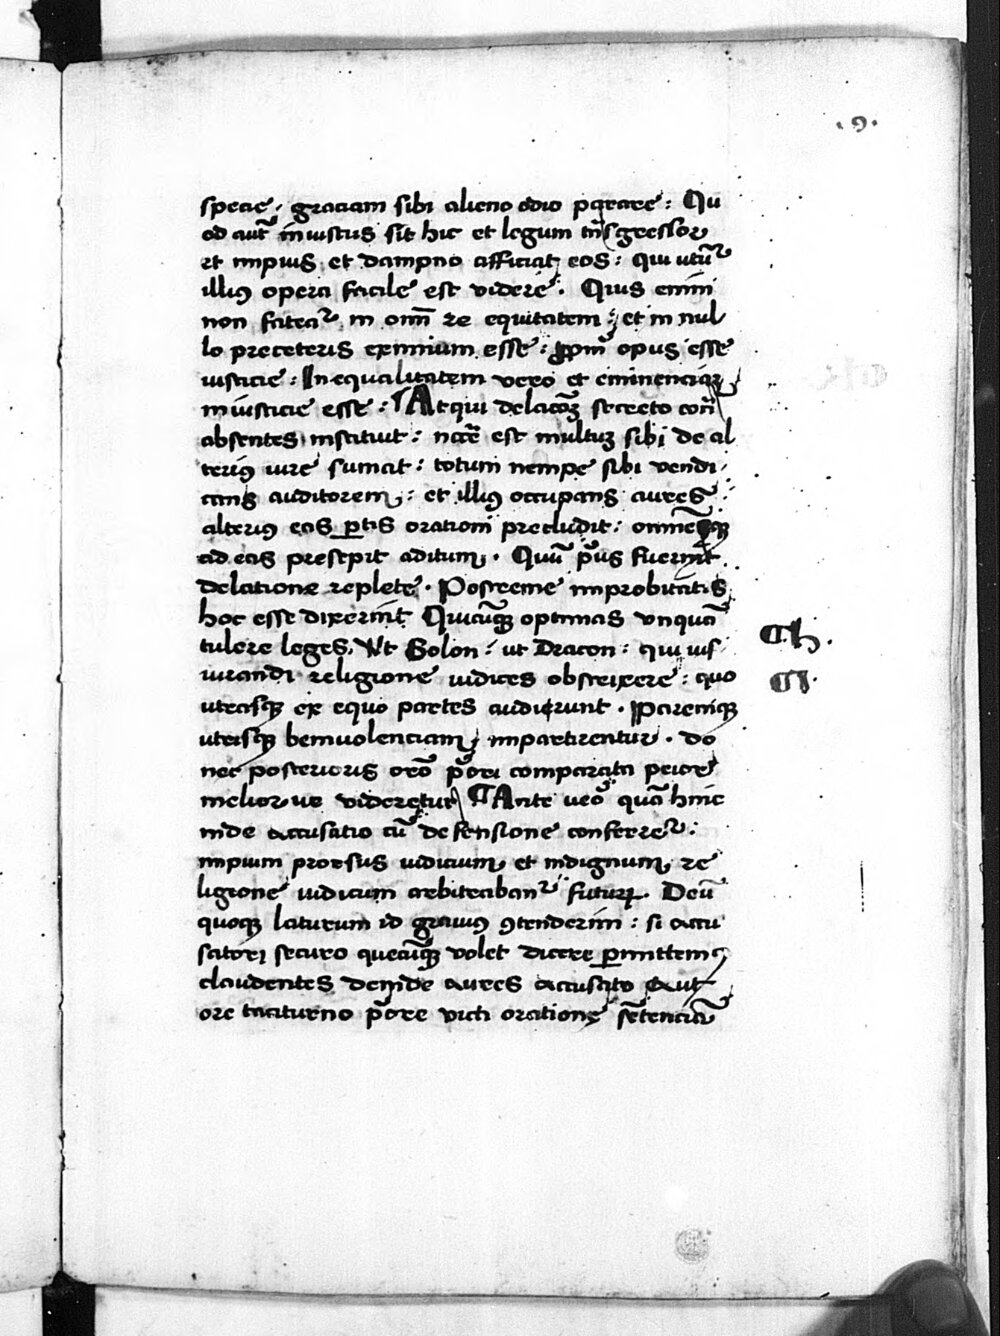 .9.
specie . graciam sibi alieno odio parare : Qu
od aut̃ iniustus sit hic et legum tñsgressor
et impius et dampno afficiat eos : qui utũr
illiꝰ opera facile est videre . Quis enim
non fateaͬ in om̃ re equitatem : et in nul
lo preceteris eximium esse : ꝓpm̃ opus esse
iusticie : Inequalitatem vero et eminenciam
iniusticie esse : ¶ Atqui delacõꝫ secreto cont̃
absentes instituit : nat̃e est multuꝫ sibi de al
teriꝰ iure sumat : totum nempe sibi vendi
cans auditorem : et illiꝰ occupans aures :
alteriꝰ eas ꝑtis orationi precludit : omnẽqꝫ
ad eas presepit aditum . Quũ pͥus fuerint
delatione replete . Postreme improbitatis
hoc esse dixerint Quicũqꝫ optimas vnquã
tulere leges. Ut Solon : ut Dracon : qui ius
iurandi religione iudices obstrixere : quo
utrasqꝫ ex equo partes audirunt . Paremqꝫ
utrisqꝫ beniuolenciam impartirentur . do
nec posterioris orõ pͥori comparata peior
melior ue videretur ¶ Ante ueͦ quã hinc
inde accusatio cũ defensione conferreͬ :
impium prorsus iudicium et indignum re
ligione iudicum arbitrabanͬ futurꝝ . Deũ
quoqꝫ laturum id grauiꝰ ꝯtenderim : si accu
satori securo quecũqꝫ volet dicere ꝑmittemꝰ
claudentes deinde aures accusato aut
ore taciturno pͥore victi oratione sẽtenciã
Ch.
Cl.